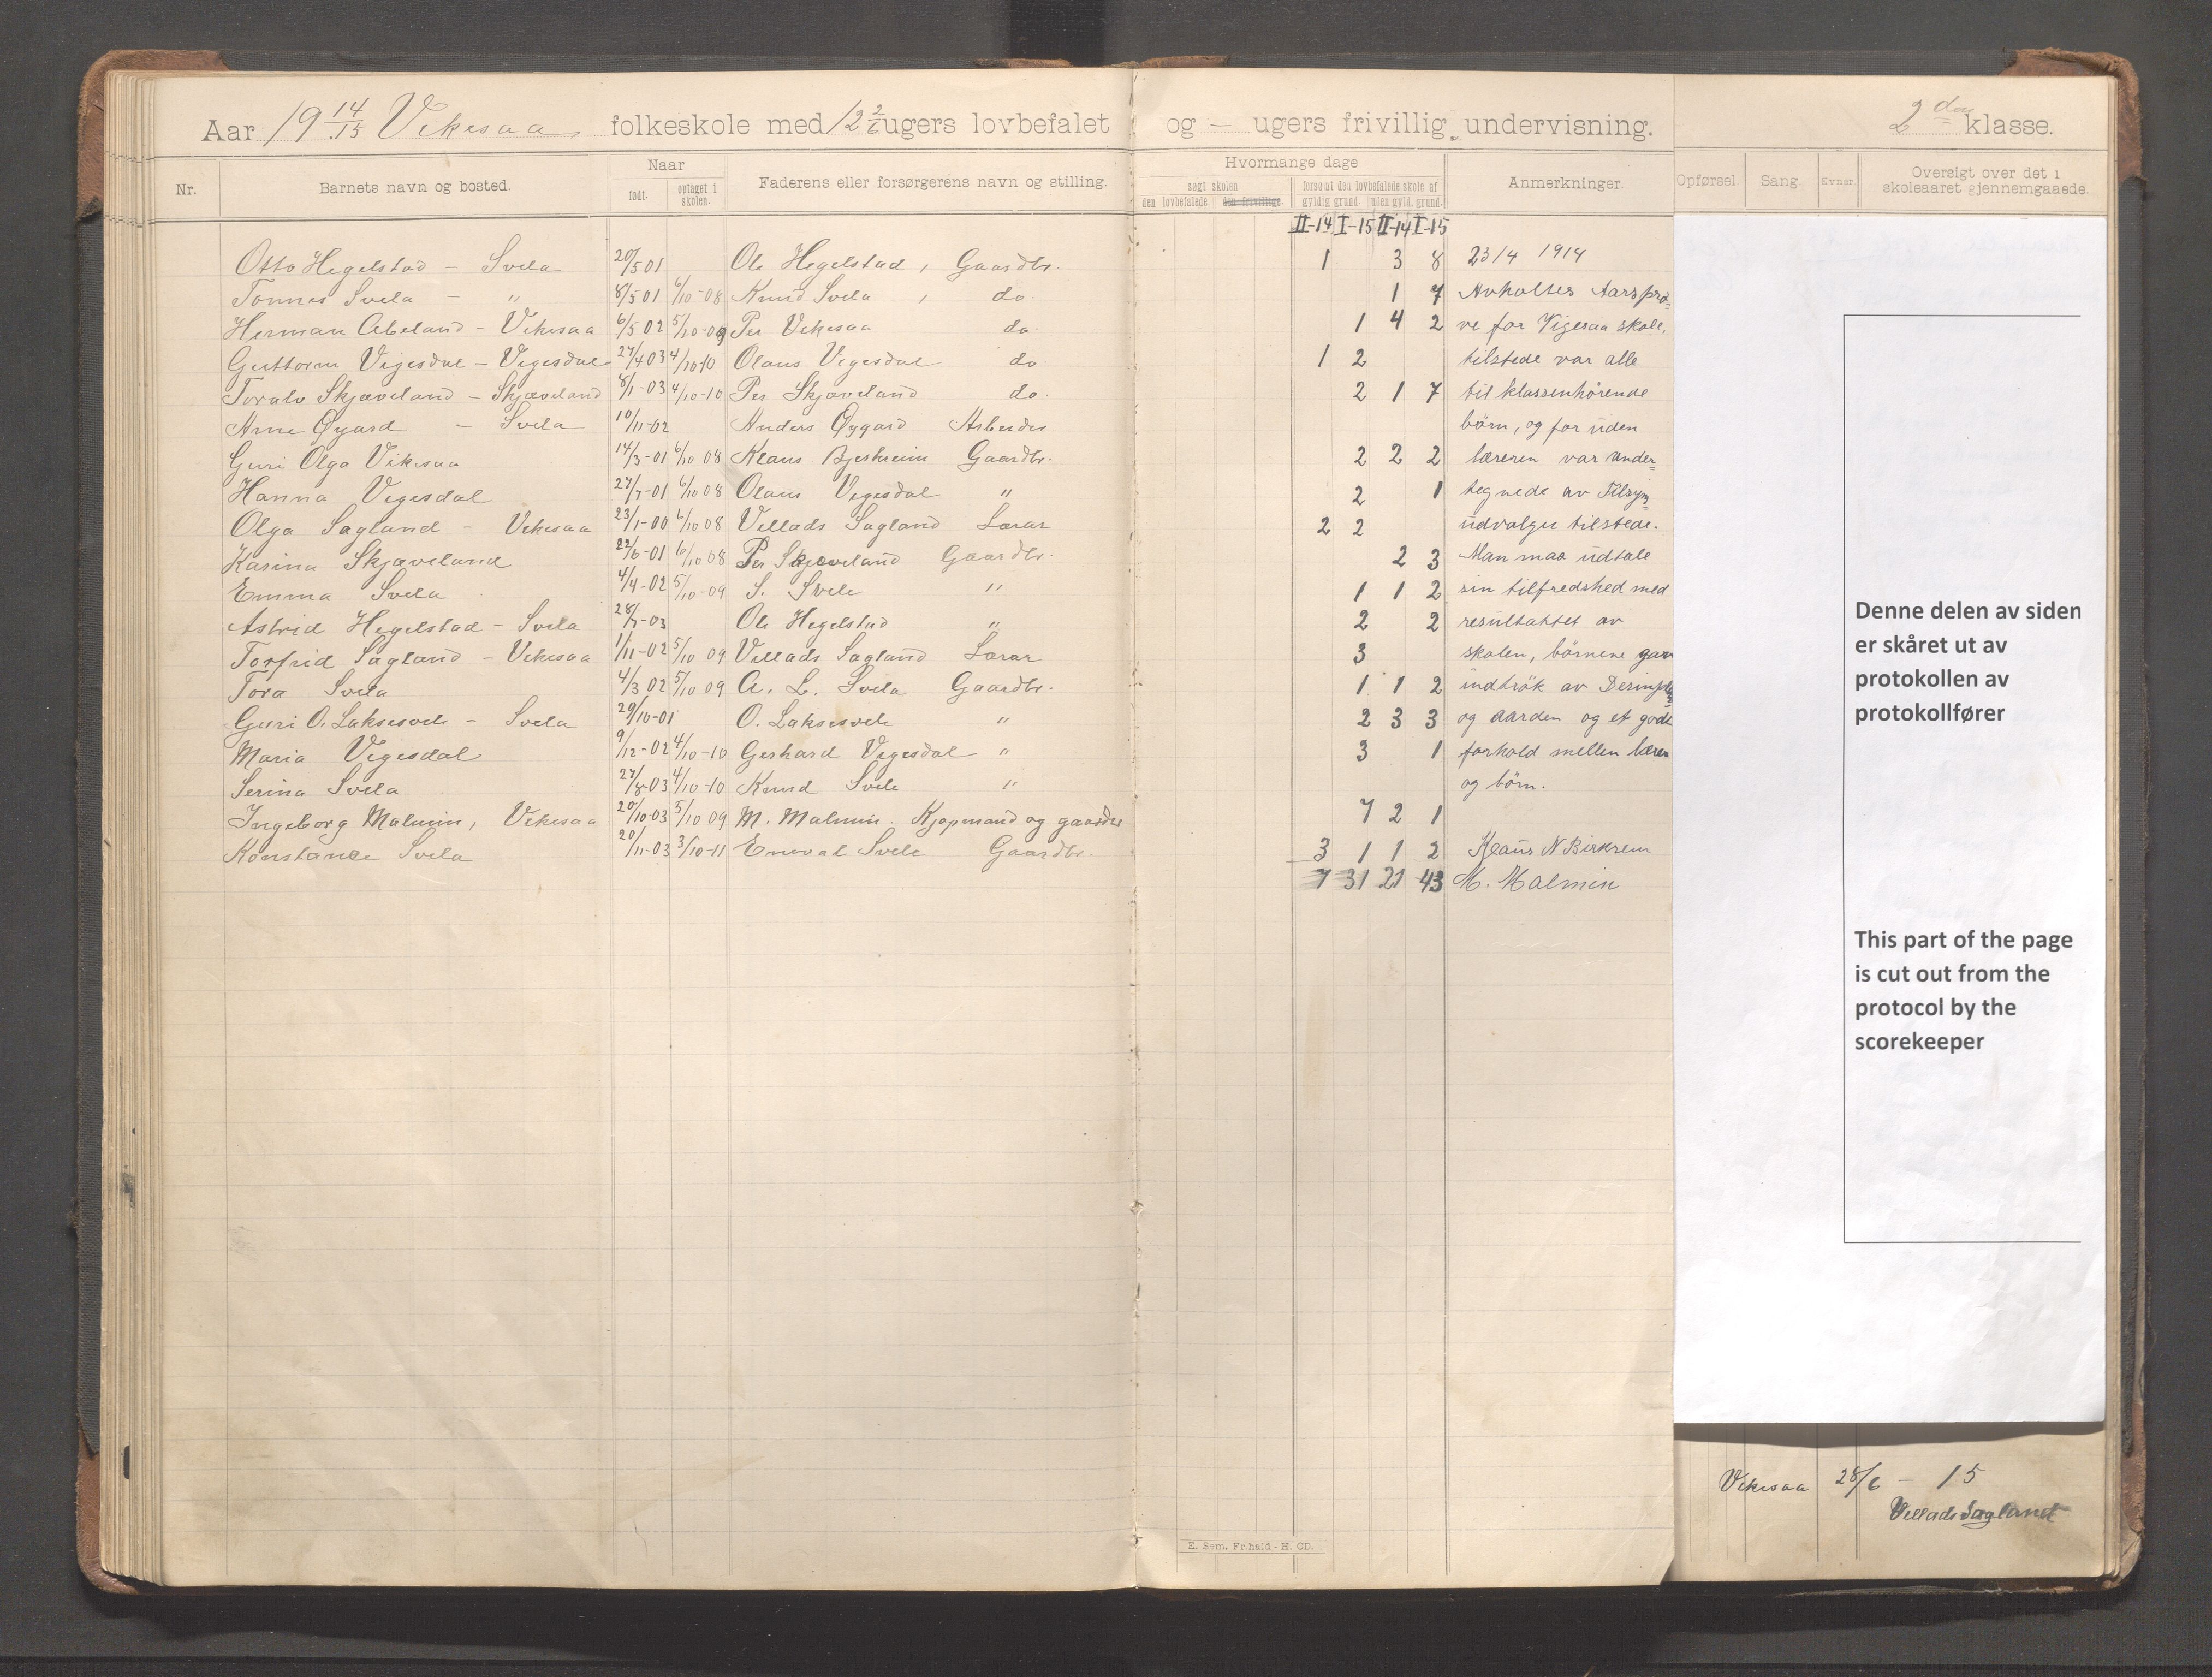 Aar 19 14/15 Vikesaa folkeskole med 12 2/6 ugers lovbefalet og — ugers frivillig undervisning. 2den klasse.
Nr. Barnets navn og bosted. Naar født. optaget i skolen. Faderens eller forsørgerens navn og stilling. Hvormange dage søgt skolen den lovbefalede den frivillige. forsømt den lovbefalede skole af gyldig grund. uden gyld. grund. Anmerkninger. Opførsel. Sang. Evner. Oversigt over det i skoleaaret gjennemgaaede.
II-14 I-15 II-14 I-15
Otto Hegelstad - Svela 20/5 01 Ole Hegelstad, Gaardbr. 1 3 8 23/4 1914
Tønnes Svela - " 8/5 01 6/10-08 Knud Svela, do. 1 7 Avholtes Aarsprø-
Herman Abeland - Vikesaa 6/5 02 5/10-09 Per Vikesaa do. 1 4 2 ve for Vigesaa skole,
Guttorm Vigesdal - Vigesdal 27/4 03 4/10 10 Olaus Vigesdal do 1 2 tilstede var alle
Toralv Skjæveland - Skjæveland 8/1-03 4/10-10 Per Skjæveland do. 2 1 7 til klassenhørende
Arne Øgard - Svela 10/11-02 Anders Øygard Arbeider børn, og for uden
Guri Olga Vikesaa 14/3-01 6/10 08 Klaus Bjerkreim Gaardbr. 2 2 2 læreren var under-
Hanna Vigesdal 27/7-01 6/10 08 Olaus Vigesdal " 2 1 tegnede av Tilsyns-
Olga Sagland - Vikesaa 23/1-00 6/10 08 Villads Sagland Lærar 2 2 udvalget tilstede.
Karina Skjæveland 22/6-01 6/10 08 Per Skjæveland Gaardbr. 2 3 Man maa udtale
Emma Svela 4/4-02 5/10-09 S. Svela " 1 1 2 sin tilfredshed med
Astrid Hegelstad - Svela 28/7-03 Ole Hegelstad " 2 2 resultattet av
Torfrid Sagland - Vikesaa 1/11-02 5/10 09 Villads Sagland Lærar 3 skolen, børnene gav
Tora Svela 4/3 02 5/10 09 A. L. Svela Gaardbr. 1 1 2 indtrök av
Guri O. Laksesvele - Svela 29/10-01 O. Laksesvele " 2 3 3 og aarden og et godt
Maria Vigesdal 9/12-02 4/10-10 Gerhard Vigesdal " 3 1 forhold mellem lærer
Serina Svela 27/8-03 4/10-10 Knud Svele " og børn.
Ingeborg Malmin, Vikesaa 20/10-03 5/10 09 M. Malmin. Kjøpmand og gaardbr 7 2 1
Konstance Svela 20/11-03 3/10-11 Enevald Svele Gaardbr. 3 1 1 2 Klaus N Birkrem
7 31 21 43 M. Malmin
Denne delen av siden
er skåret ut av
protokollen av
protokollfører
This part of the page
is cut out from the
protocol by the
scorekeeper
Vikesaa 28/6 - 15
Villads Sagland
E. Sem. Fr.hald - H. CD.